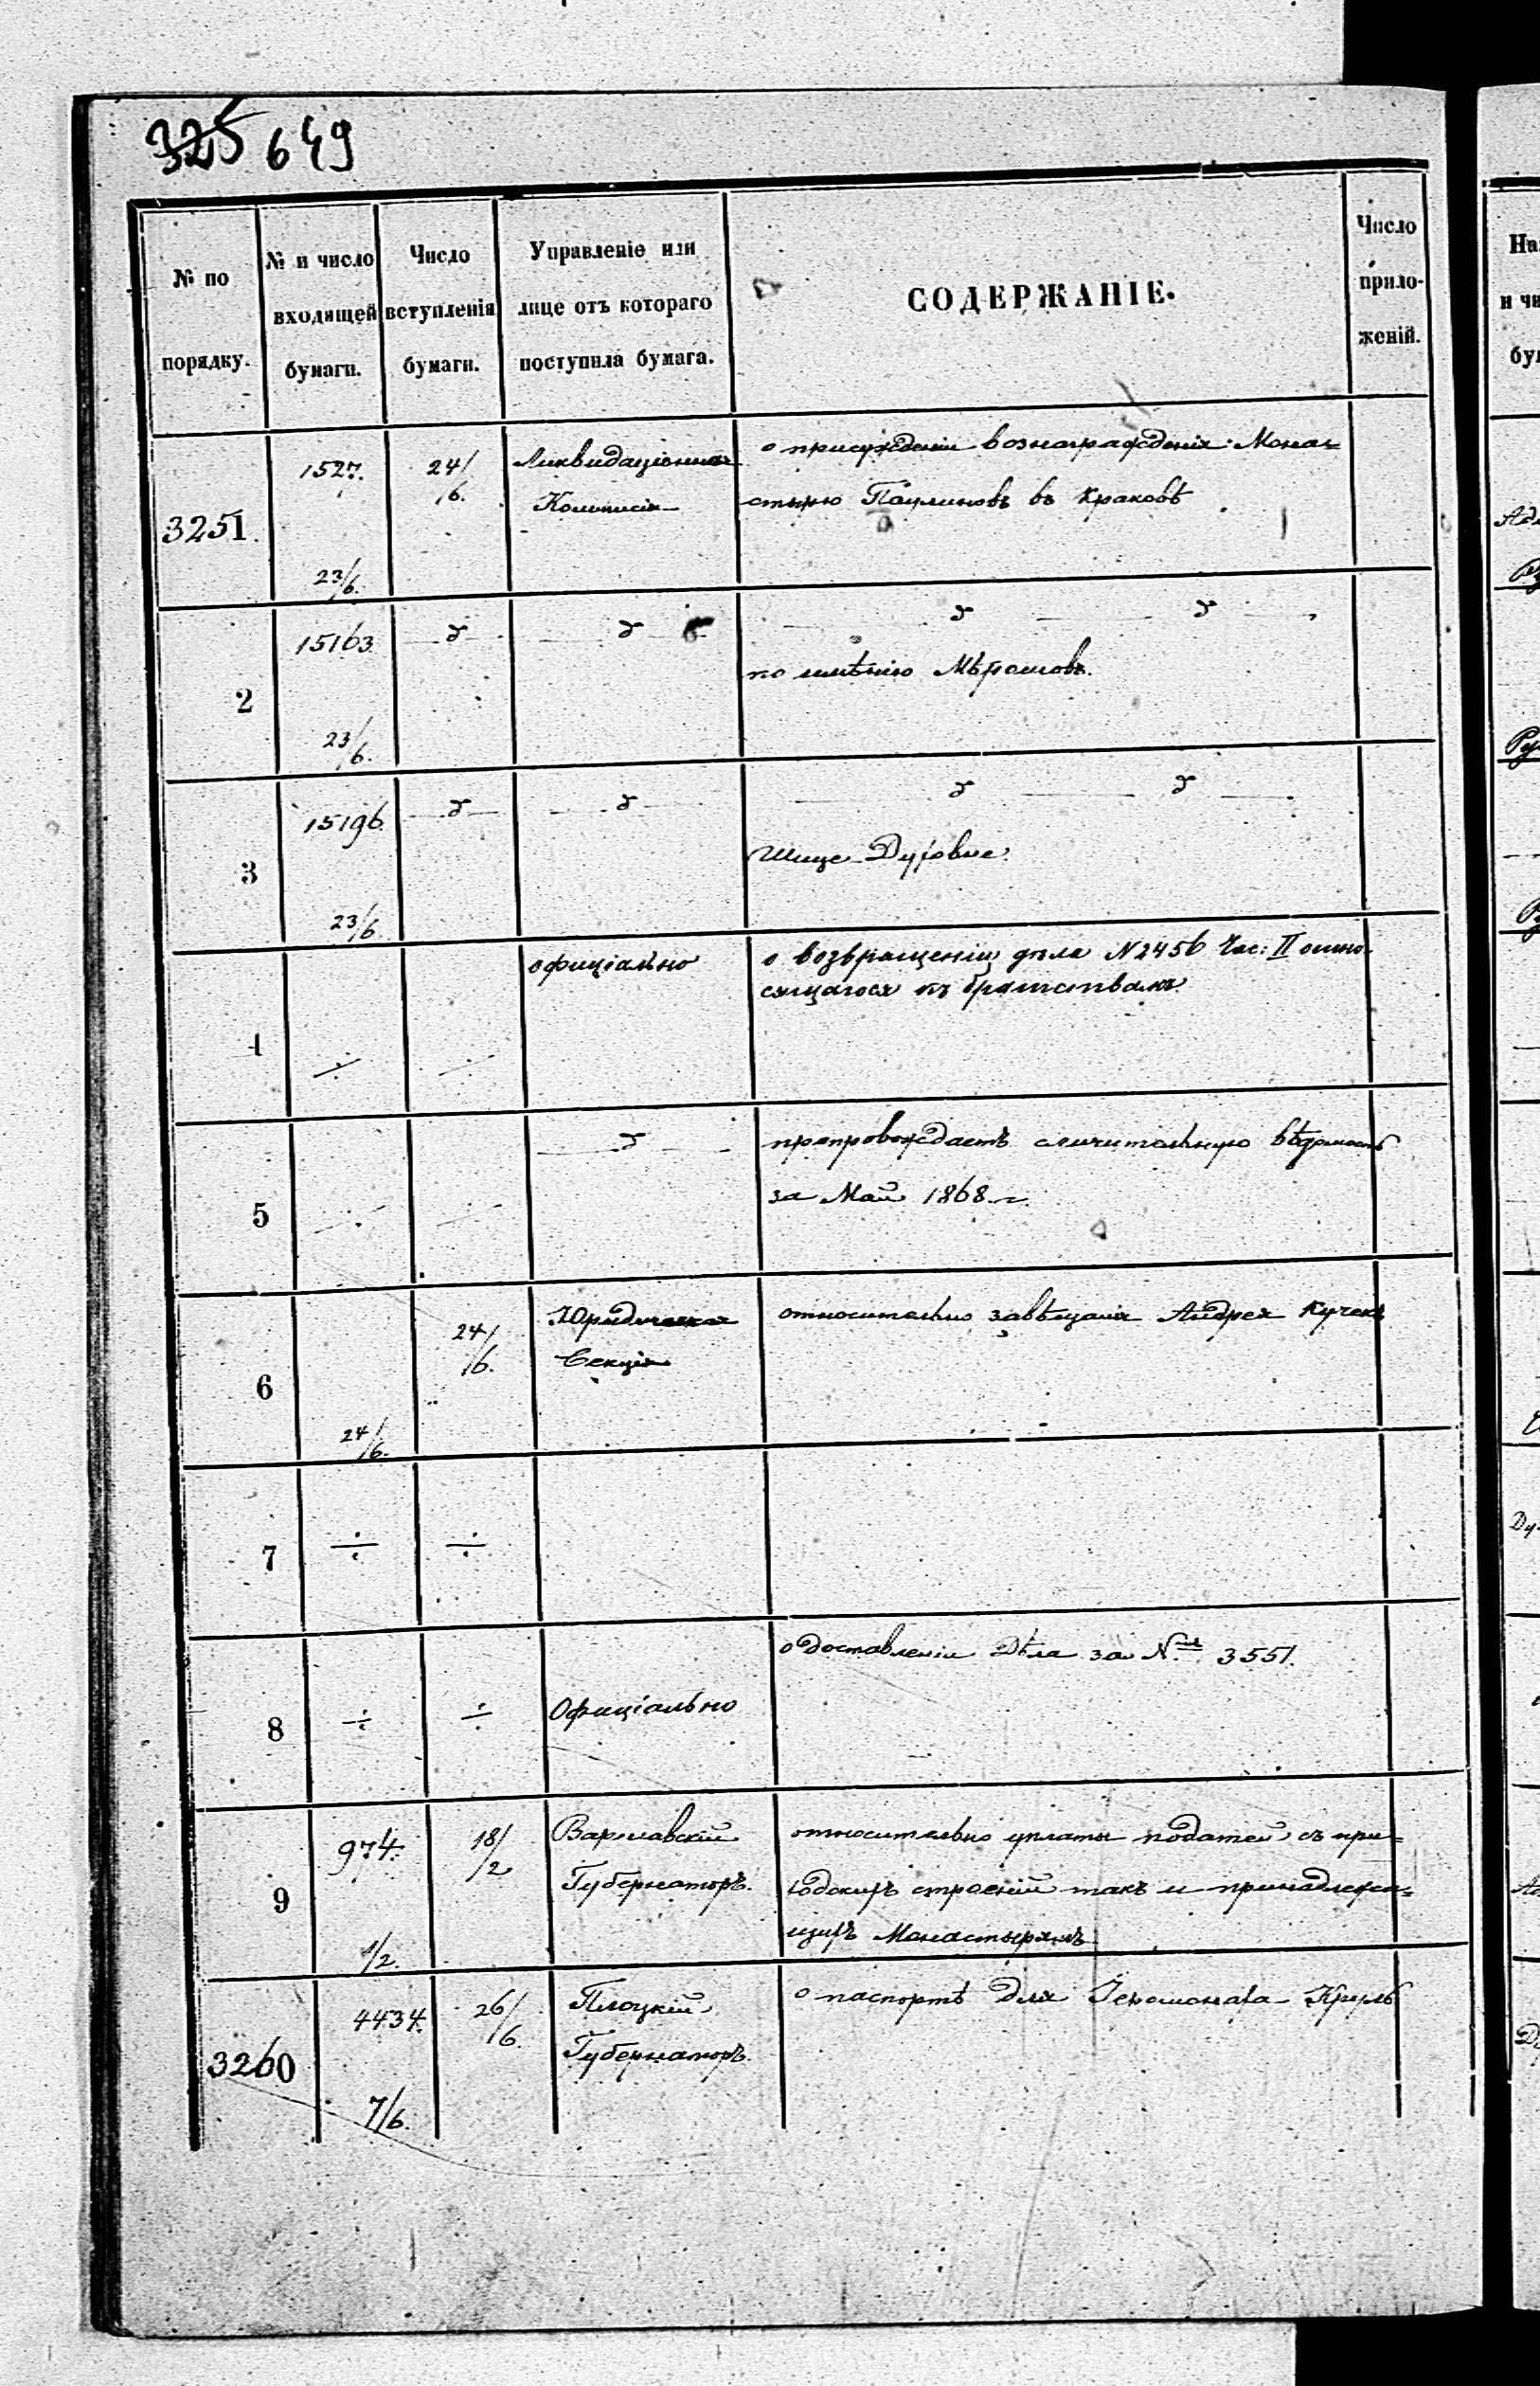 325 649
№ по порядку.
№ и число входящей бумаги.
Число вступленія бумаги.
Управленіе или лице отъ котораго поступила бумага.
СОДЕРЖАНІЕ.
Число приложеній.
3251.
1527.
23/6.
24/6.
Ликвидаціонная
Коммисія
о присужденіи вознагражденія Мона=
стырю Паулиновъ въ Краковѣ
2
15163
23/6.
по имѣнію
3
15196.
23/6
4
офиціально
о возвращеніи дѣла N 2456 Час: II отно-
сящагося къ братствамъ
5
препровождаетъ сличительную вѣдомость
за Май 1868 г.
6
24/6.
24/6.
Юридическая
Секція
относительно завѣщанія Андрея
7
8
Офиціально
о доставленіи Дѣла за N. 3551.
9
974.
1/2.
18/2
Варшавскій
Губернаторъ.
относительно уплаты податей съ при=
ходскихъ строеній такъ и принадлежа=
щихъ Монастырямъ
3260
4434.
7/6.
26/6.
Плоцкій
Губернаторъ.
о паспортѣ для Іеромонаха